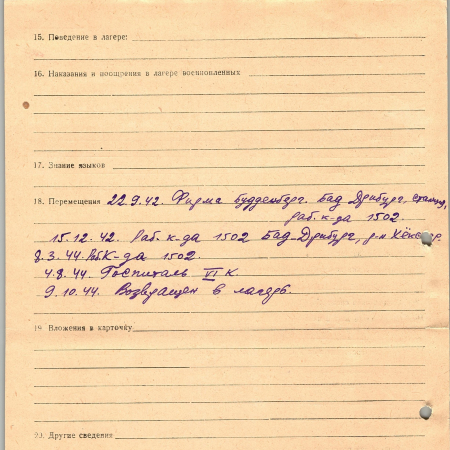 15. Поведение в лагере:
16. Наказания и поощрения в лагере военнопленных
17. Знание языков
18. Перемещения 22.9.42. Фирма Будденберг. Бад-Дрибург, станция,
раб. к-да 1502.
15.12.42. Раб. к-да 1502 Бад-Дрибург, р-н Хёкстер.
8.3.44. Рб К-да 1502.
4.8.44. Госпиталь VI К
9.10.44. Возвращен в лагерь.
19. Вложения в карточку
20. Другие сведения